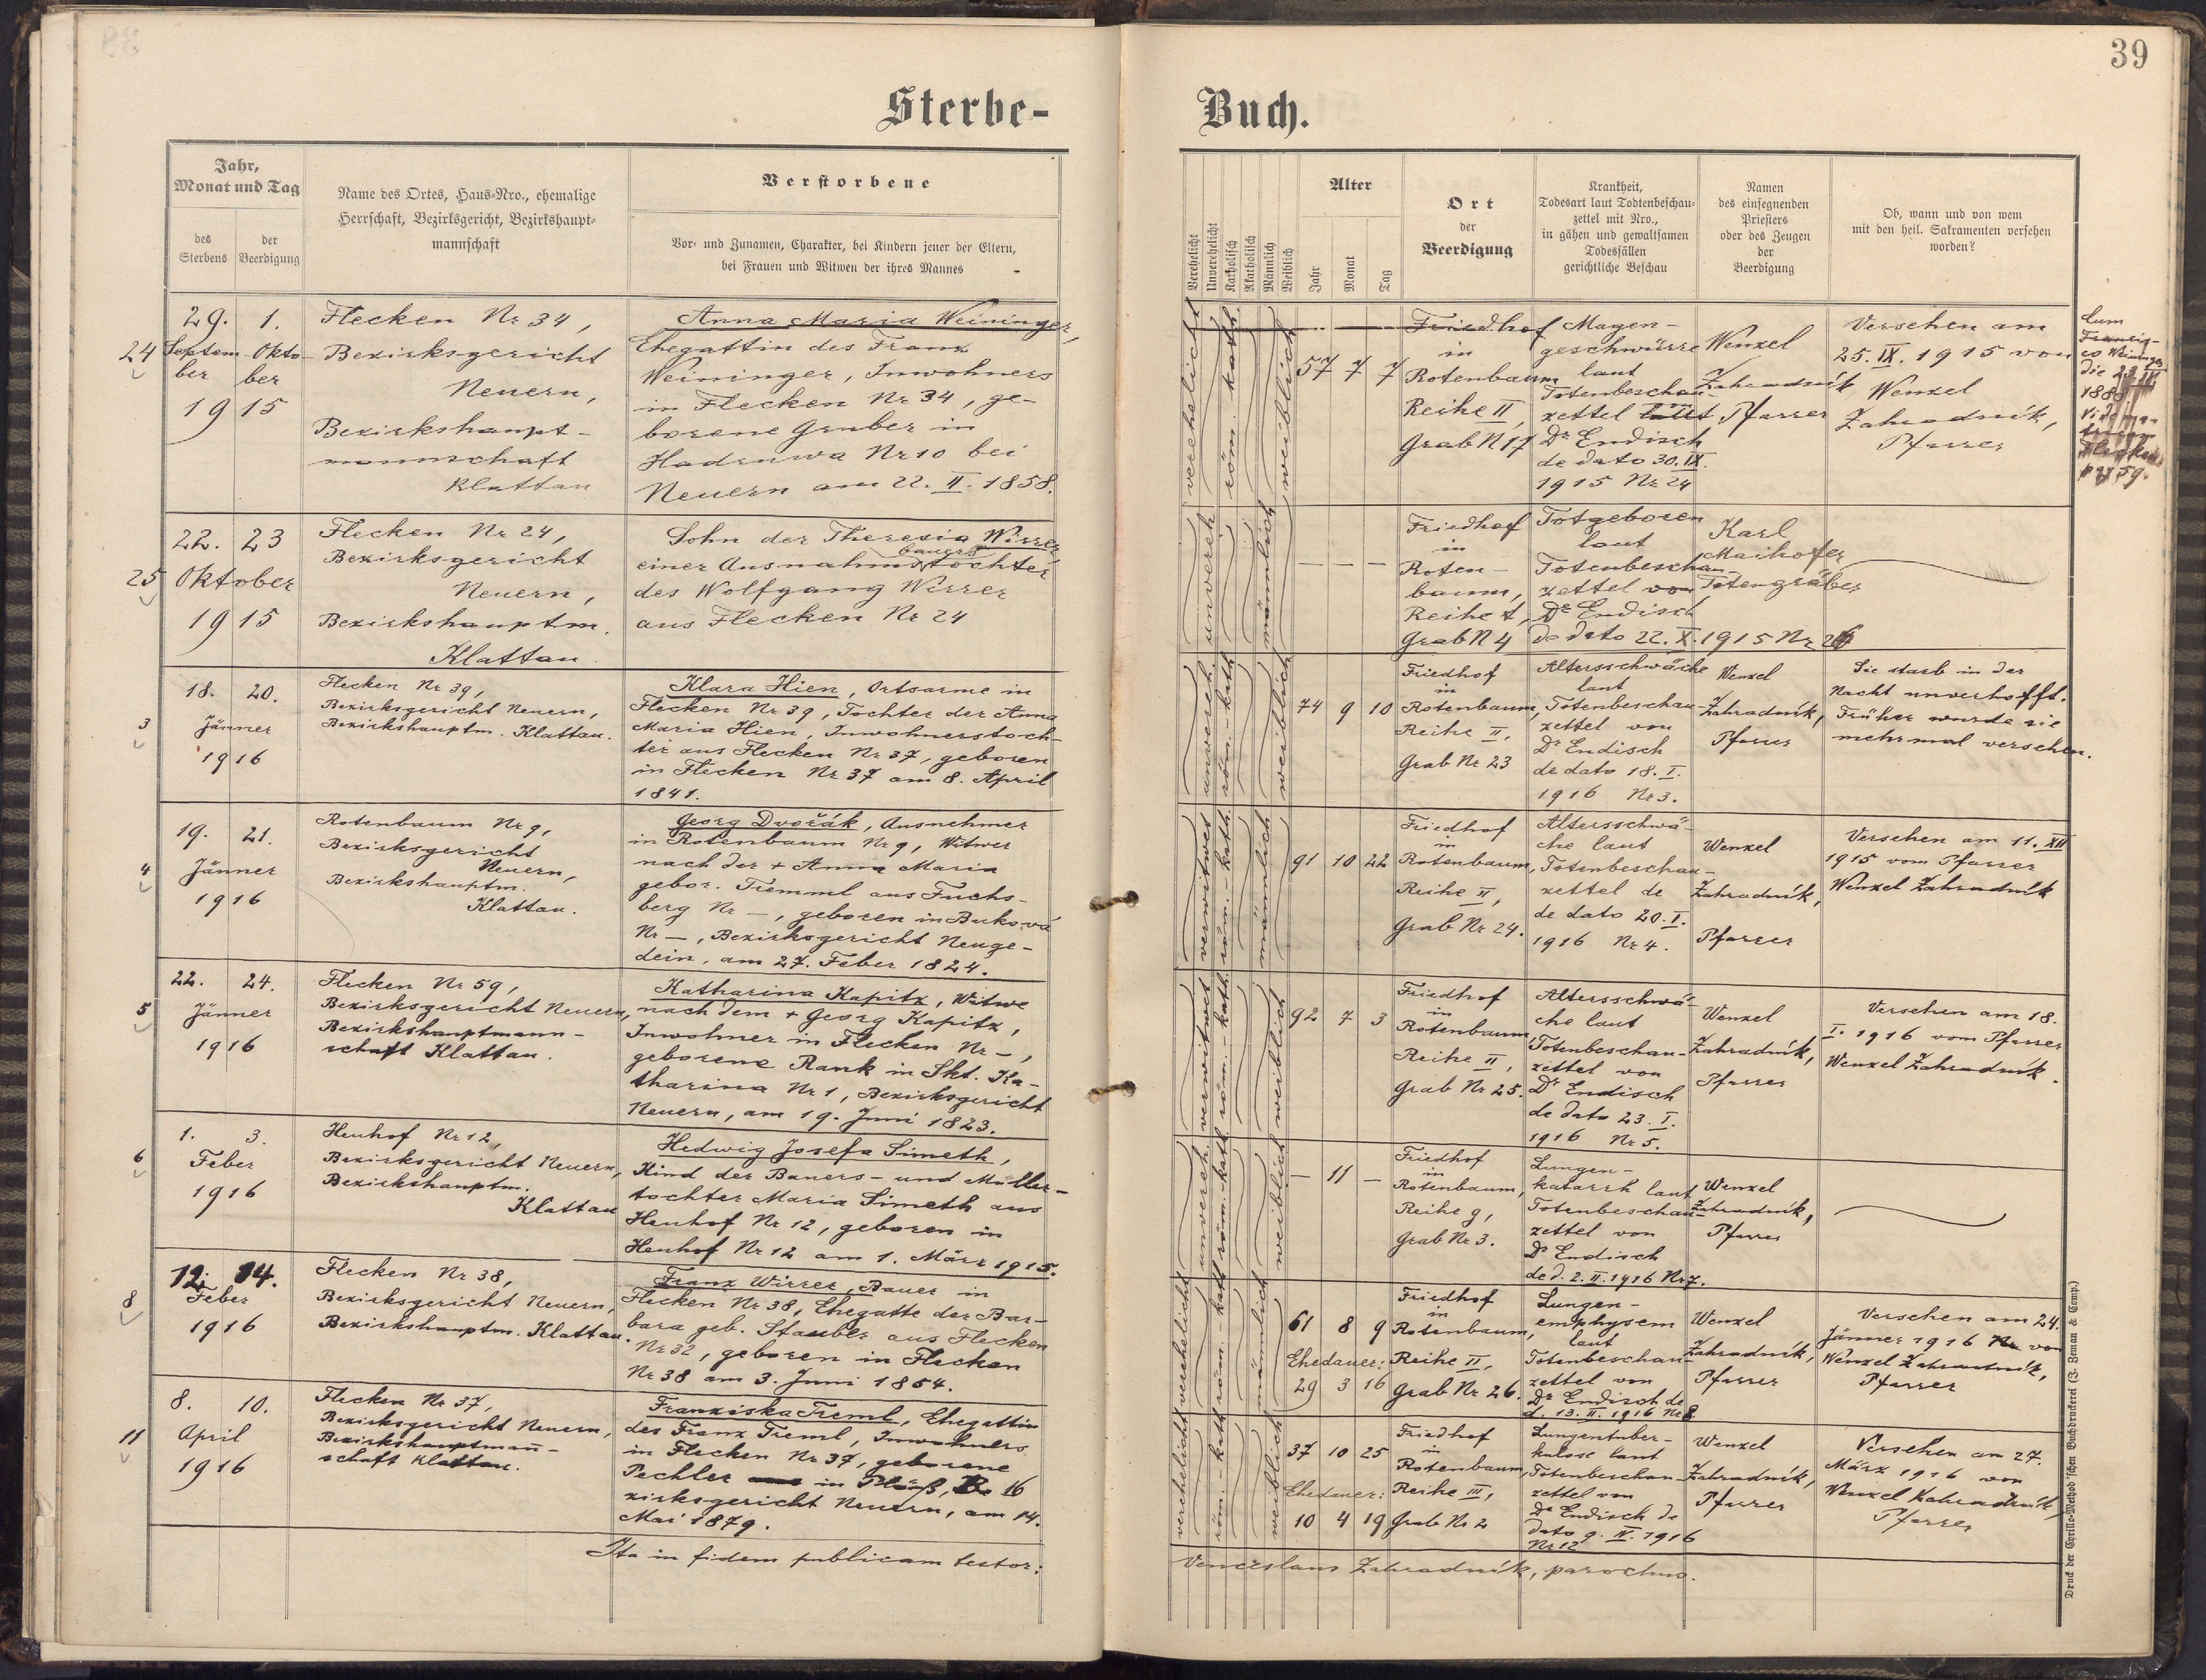 39
Sterbe-
Buch.
Jahr,
Monat und Tag
des
Sterbens
der
Beerdigung
Name des Ortes, Haus-Nro., ehemalige
Herrschaft, Bezirksgericht, Bezirkshaupt-
mannschaft
Verstorbene
Vor- und Zunamen, Charakter, bei Kindern jener der Eltern,
bei Frauen und Witwen der ihres Mannes
Verehelicht
Unverehelicht
Katholisch
Akatholisch
Männlich
Weiblich
Alter
Jahr
Monat
Tag
Ort
der
Beerdigung
Krankheit,
Todesart laut Todtenbeschau-
zettel mit Nro.,
in gähen und gewaltsamen
Todesfällen
gerichtliche Beschau
Namen
des einsegnenden
Priesters
oder des Zeugen
der
Beerdigung
Ob, wann und von wem
mit den heil. Sakramenten versehen
worden?
24
29. 1.
Septem- Okto-
ber ber
1915
Flecken Nr 34,
Bezirksgericht
Neuern,
Bezirkshaupt-
mannschaft
Klattau
Anna Maria Weininger,
Ehegattin des Franz
Weininger, Inwohners
in Flecken Nr 34, ge-
borene Gruber in
Hadruwa Nr 10 bei
Neuern am 22. II. 1858.
verehelicht
röm.-kath.
weiblich
57 7 7
Friedhof
in
Rotenbaum
Reihe II,
Grab N 17
Magen-
geschwürre
laut
Totenbeschau-
zettel von
Dr Endisch
de dato 30. IX.
1915 Nr 24
Wenzel
Zahradník
Pfarrer
Versehen am
25. IX. 1915 von
Wenzel
Zahradník,
Pfarrer
Cum
Francis-
co Weininger
die
1888
25
22. 23
Oktober
1915
Flecken Nr 24,
Bezirksgericht
Neuern,
Bezirkshauptm.
Klattau.
Sohn der Theresia Wirrer,
einer Ausnahmsbauerstochter
des Wolfgang Wirrer
aus Flecken Nr 24
unvereh
männlich
— — —
Friedhof
in
Roten-
baum,
Reihe t,
Grab N 4
Totgeboren
laut
Totenbeschau-
zettel von
Dr Endisch
de dato 22. X. 1915 Nr 26
Karl
Maihofer
Totengräber
3
18. 20.
Jänner
1916
Flecken Nr 39,
Bezirksgericht Neuern,
Bezirkshauptm. Klattau.
Klara Hien, Ortsarme in
Flecken Nr 39, Tochter der Anna
Maria Hien, Inwohnerstoch-
ter aus Flecken Nr 37, geboren
in Flecken Nr 37 am 8. April
1841.
unvereh.
röm.-kath
weiblich
74 9 10
Friedhof
in
Rotenbaum,
Reihe II,
Grab Nr 23
Altersschwäche
laut
Totenbeschau-
zettel von
Dr Endisch
de dato 18. I.
1916 Nr 3.
Wenzel
Zahradník,
Pfarrer
Sie starb in der
Nacht unverhofft.
Früher wurde sie
mehrmal versehen.
4
19. 21.
Jänner
1916
Rotenbaum Nr 9,
Bezirksgericht
Neuern,
Bezirkshauptm.
Klattau.
Georg Dvořák, Ausnehmer
in Rotenbaum Nr 9, Witwer
nach der + Anna Maria
gebor. Tremml aus Fuchs-
berg Nr —, geboren in Buková
Nr —, Bezirksgericht Neuge-
dein, am 27. Feber 1824.
verwitwet
röm.-kath.
männlich
91 10 22
Friedhof
in
Rotenbaum,
Reihe II,
Grab Nr 24.
Altersschwä-
che laut
Totenbeschau-
zettel de
de dato 20. I.
1916 Nr 4.
Wenzel
Zahradník,
Pfarrer
Versehen am 11. XII
1915 vom Pfarrer
Wenzel Zahradník
5
22. 24.
Jänner
1916
Flecken Nr 59,
Bezirksgericht Neuern,
Bezirkshauptmann-
schaft Klattau.
Katharina Kapitz, Witwe
nach dem + Georg Kapitz,
Inwohner in Flecken Nr —,
geborene Rank in Skt. Ka-
tharina Nr 1, Bezirksgericht
Neuern, am 19. Juni 1823.
verwitwet
röm.-kath.
weiblich
92 7 3
Friedhof
in
Rotenbaum,
Reihe II,
Grab Nr 25.
Altersschwä-
che laut
Totenbeschau-
zettel von
Dr Endisch
de dato 23. I.
1916 Nr 5.
Wenzel
Zahradník,
Pfarrer
Versehen am 18.
I. 1916 vom Pfarrer
Wenzel Zahradník.
6
1. 3.
Feber
1916
Heuhof Nr 12,
Bezirksgericht Neuern,
Bezirkshauptm.
Klattau
Hedwig Josefa Simeth,
Kind der Bauers- und Müller-
tochter Maria Simeth aus
Heuhof Nr 12, geboren in
Heuhof Nr 12 am 1. März 1915.
unvereh.
röm.-kath
weiblich
— 11 —
Friedhof
in
Rotenbaum,
Reihe g,
Grab Nr 3.
Lungen-
katarrh laut
Totenbeschau-
zettel von
Dr Endisch
de d. 2. II. 1916 Nr 7.
Wenzel
Zahradník,
Pfarrer
8
12. 14.
Feber
1916
Flecken Nr 38,
Bezirksgericht Neuern,
Bezirkshauptm. Klattau.
Franz Wirrer, Bauer in
Flecken Nr 38, Ehegatte der Bar-
bara geb. Stauber aus Flecken
Nr 32, geboren in Flecken
Nr 38 am 3. Juni 1854.
verehelicht
röm.-kath
männlich
61 8 9
Ehedauer:
29 3 16
Friedhof
in
Rotenbaum,
Reihe II,
Grab Nr 26.
Lungen-
emphysem
laut
Totenbeschau-
zettel von
Dr Endisch de
d. 13. II. 1916 Nr 8.
Wenzel
Zahradník,
Pfarrer
Versehen am 24.
Jänner 1916 von
Wenzel Zahradník,
Pfarrer
11
8. 10.
April
1916
Flecken Nr 37,
Bezirksgericht Neuern,
Bezirkshauptmañ-
schaft Klattau.
Franziska Treml, Ehegattin
des Franz Treml, Inwohners
in Flecken Nr 37, geborene
Pechler in Plöß, 16 Be-
zirksgericht Neuern, am 14.
Mai 1879.
verehelicht
röm.-kath
weiblich
37 10 25
Ehedauer:
10 4 19
Friedhof
in
Rotenbaum,
Reihe III,
Grab Nr 2
Lungentuber-
kulose laut
Totenbeschau-
zettel von
Dr Endisch de
dato 9. IV. 1916
Nr 12
Wenzel
Zahradník,
Pfarrer
Versehen am 27.
März 1916 von
Wenzel Zahradník,
Pfarrer
Ita in fidem publicam testor:
Venceslaus Zahradník, parochus.
Druck der Cyrillo-Method'schen Buchdruckerei (J. Zeman & Comp.)